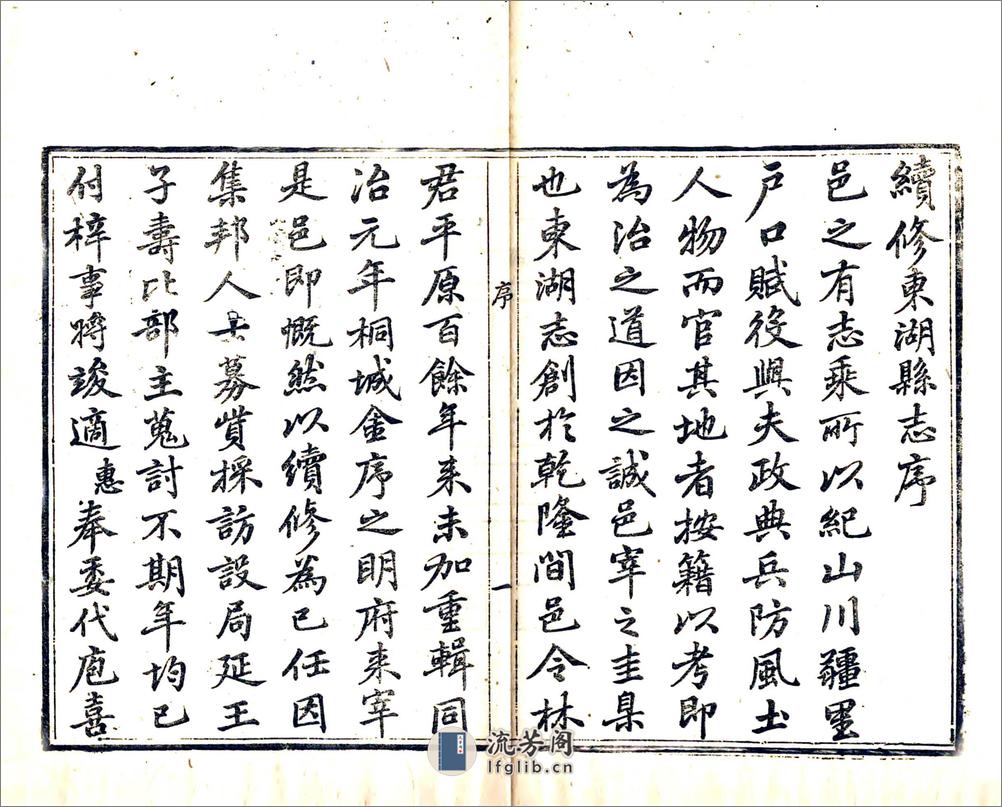 續修東湖縣志序
邑之有志乘所以紀山川疆里
戶口賦役與夫政典兵防風土
人物而官其地者按籍以考即
為治之道因之誠邑宰之圭臬
也東湖志創於乾隆間邑令林
序
一
君平原百餘年來未加重輯同
治元年桐城金序之明府來宰
是邑即慨然以續修為己任因
集邦人士募貲採訪設局延王
子壽比部主蒐討不期年均已
付梓事將竣適惠奉委代庖喜
流芳阁
lfglib.cn